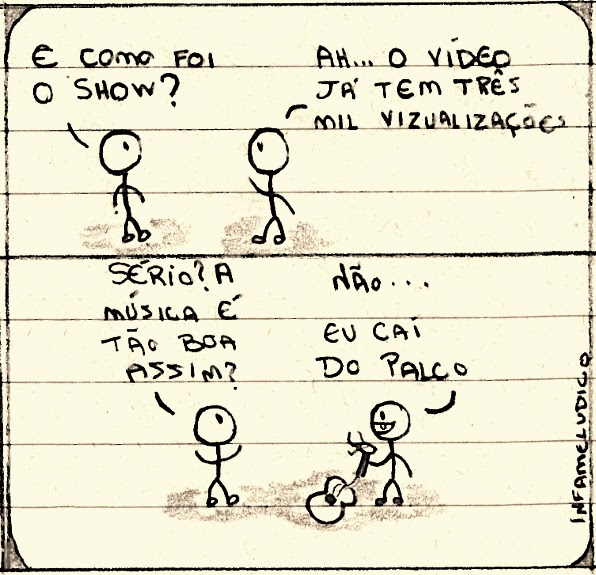 E COMO FOI
O SHOW?
AH... O VÍDEO
JÁ TEM TRÊS
MIL VIZUALIZAÇÕES
SÉRIO? A
MÚSICA É
TÃO BOA
ASSIM?
NÃO...
EU CAÍ
DO PALCO
INFAMELUDICO